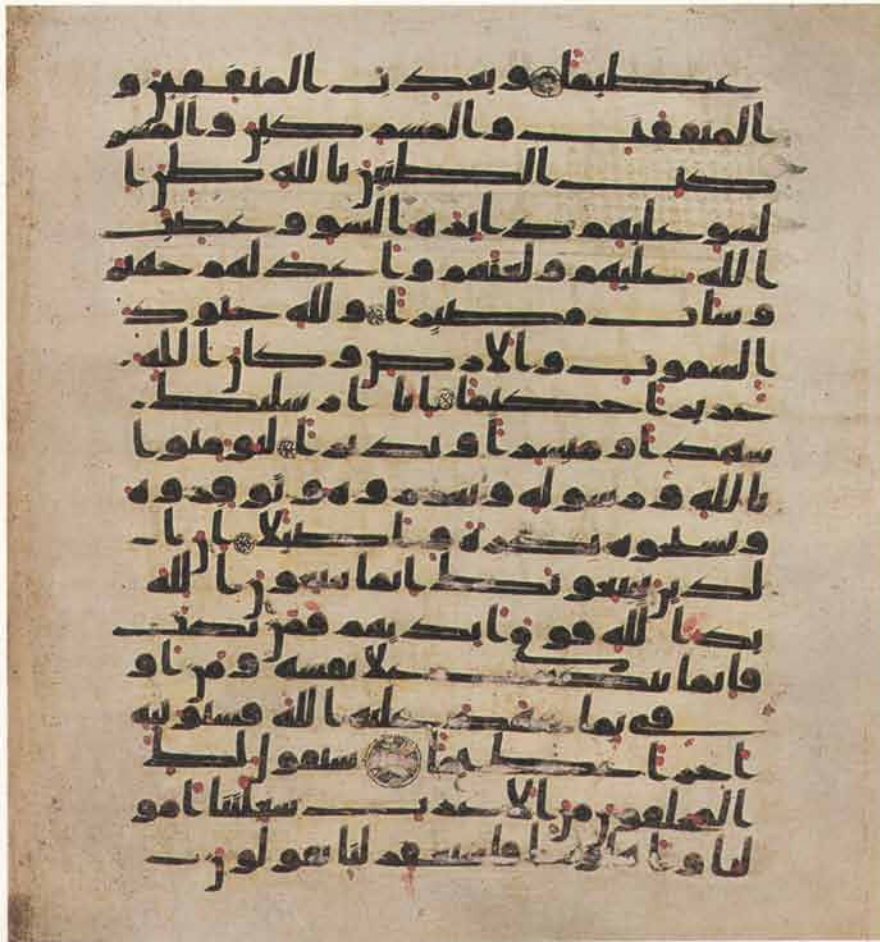 عظيما و يعذب المنفقين و
المنفقت والمشركين والمشر
كت الظنين بالله ظن ا
لسو عليهم دايرة السو وغضب
الله عليهم ولعنهم واعد لهم جهنم
وسات مصيرا ولله جنود
السموت والارض وكان الله
عزيزا حكيما انا ارسلنك
شهدا ومبشرا ونذيرا لتومنوا
بالله ورسوله وتعزروه وتوقروه
وتسبحوه بكرة واصيلا ان ا
لذين يبيعونك انما يبيعون الله
يد الله فوق ايديهم فمن نكث
فانما ينكث على نفسه ومن او
فى بما عهد عليه الله فسنوتيه
اجرا عظيما سيقول لك
المخلفون من الاعراب شغلتنا امو
لنا واهلونا فاستغفر لنا يقولون